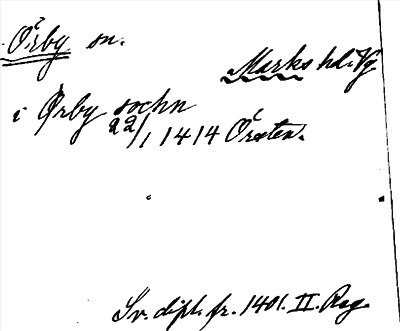 Örby sn.
Marks hd. Vg
i Ørby sochn
22/1 1414 Öresten.
Sv. dipl. fr. 1401. II. Reg.